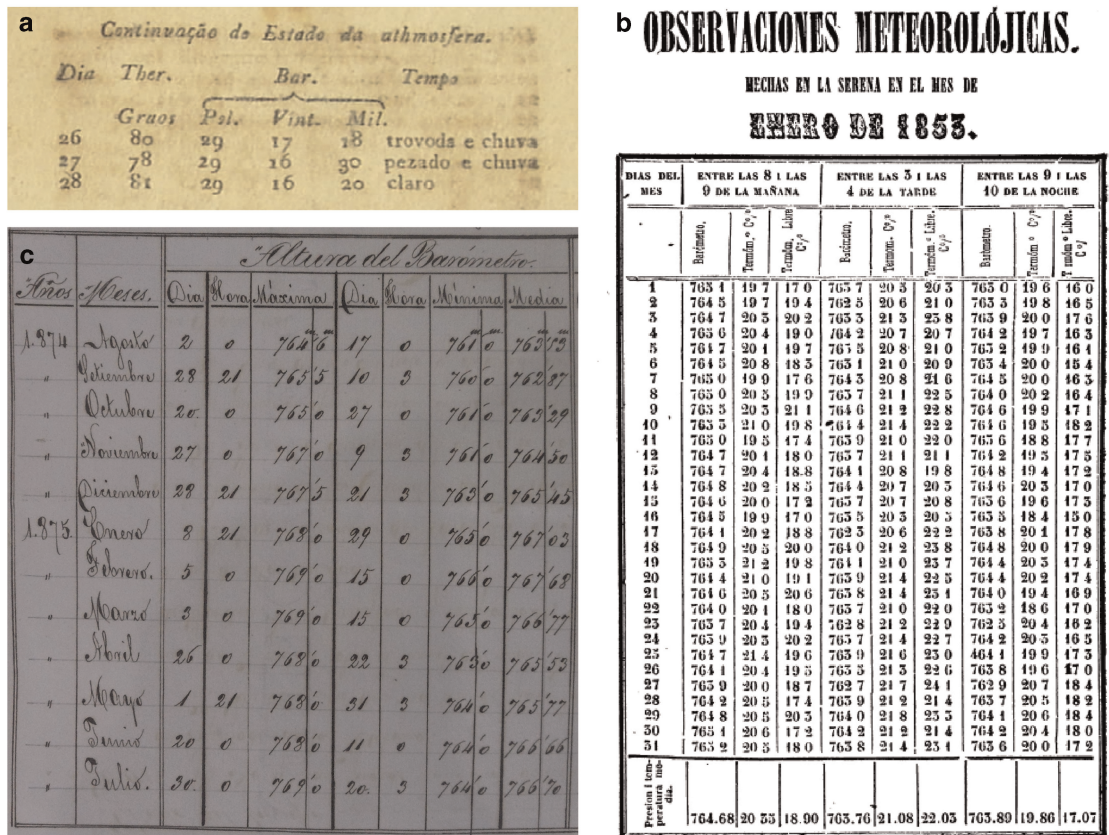 a
Continuação do Estado da athmosfera.
Dia Ther. Bar. Tempo
Graos Pol. Vint. Mil.
26 80 29 17 18 trovods e chuva
27 78 29 16 30 pezado e chuva
28 81 29 16 20 claro
c
Altura del Barómetro.
Años Meses. Dia Hora Máxima Dia Hora Mínima Media
1.874 Agosto 2 0 764'6 17 0 761'0 763'13
" Setiembre 28 21 765'5 10 3 760'0 762'87
" Octubre 20. 0 765'0 27 0 761'0 763'29
" Noviembre 27 0 767'0 9 3 761'0 764'50
" Diciembre 28 21 767'5 21 3 763'0 765'45
1.875. Enero 8 21 768'0 29 0 765'0 767'03
" Febrero. 5 0 769'0 15 0 766'0 767'68
" Marzo 3 0 769'0 15 0 765'0 766'77
" Abril 26 0 768'0 22 3 763'0 765'53
" Mayo 1 21 768'0 31 3 764'0 765'77
" Junio 20 0 768'0 11 0 764'0 766'66
" Julio. 30. 0 769'0 20. 3 764'0 766'70
b
OBSERVACIONES METEOROLÓJICAS.
HECHAS EN LA SERENA EN EL MES DE
ENERO DE 1853.
DIAS DEL MES ENTRE LAS 8 I LAS 9 DE LA MAÑANA ENTRE LAS 3 I LAS 4 DE LA TARDE ENTRE LAS 9 I LAS 10 DE LA NOCHE
Barómetro. Termóm.º Cº/º Termóm. Libre Cº/º Barómetro. Termom. Cº/º Termóm.º Libre. Cº/º Barómetro. Termóm º Cº/º Termóm º Libre. Cº/
1 765 1 19 7 17 0 763 7 20 5 20 3 763 0 19 6 16 0
2 764 5 19 7 19 4 762 5 20 6 21 0 763 3 19 8 16 5
3 764 7 20 3 20 2 763 3 21 3 23 8 763 9 20 0 17 6
4 763 6 20 4 19 0 764 2 20 7 20 7 764 2 19 7 16 3
5 764 7 20 1 19 7 763 5 20 8 21 0 763 2 19 9 16 1
6 764 5 20 8 18 3 763 1 21 0 20 9 763 4 20 0 15 4
7 765 0 19 9 17 6 764 3 20 8 21 6 764 5 20 0 16 3
8 765 0 20 5 19 9 763 7 21 1 22 5 764 0 20 2 16 4
9 765 5 20 3 21 1 764 6 21 2 22 8 764 6 19 9 17 1
10 765 3 21 0 19 8 764 4 21 4 22 2 764 6 19 5 18 2
11 765 0 19 5 17 4 763 9 21 0 22 0 763 6 18 8 17 7
12 764 7 20 1 18 0 763 7 21 1 21 1 764 2 19 5 17 5
13 764 7 20 4 18.8 764 1 20 8 19 8 764 8 19 4 17 2
14 764 8 20 2 18 5 764 4 20 7 20 3 764 6 20 3 17 0
15 764 6 20 0 17 2 763 7 20 7 20 8 763 6 19 6 17 3
16 764 5 19 9 17 0 763 5 20 3 20 5 763 5 18 4 15 0
17 764 1 20 2 18 8 762 3 20 6 22 2 763 8 20 1 17 8
18 764 9 20 5 20 0 764 0 21 2 23 8 764 8 20 0 17 9
19 765 3 21 2 19 8 764 1 21 0 23 7 764 4 20 3 17 4
20 764 4 21 0 19 1 763 9 21 4 22 5 764 4 20 2 17 4
21 764 6 20 5 20 6 763 8 21 4 23 1 764 0 19 4 16 9
22 764 0 20 1 18 0 763 7 21 0 22 0 763 2 18 6 17 0
23 763 7 20 4 19 4 762 8 21 2 22 9 762 5 20 4 16 2
24 763 9 20 3 20 2 763 7 21 4 22 7 764 2 20 5 16 5
25 764 7 21 4 19 6 763 9 21 6 23 0 464 1 19 9 17 3
26 764 1 20 4 19 5 763 5 21 3 22 6 763 8 19 6 17 0
27 763 9 20 0 18 7 762 7 21 7 24 1 762 9 20 7 18 4
28 764 2 20 5 17 4 763 9 21 2 21 4 763 7 20 5 18 2
29 764 8 20 5 20 3 764 0 21 8 23 3 764 1 20 6 18 4
30 765 1 20 6 17 2 764 2 21 2 21 4 764 2 20 4 18 0
31 765 2 20 5 18 0 763 8 21 4 23 1 763 6 20 0 17 2
Presion i temperatura media. 764.68 20 35 18.90 763.76 21.08 22.03 763.89 19.86 17.07